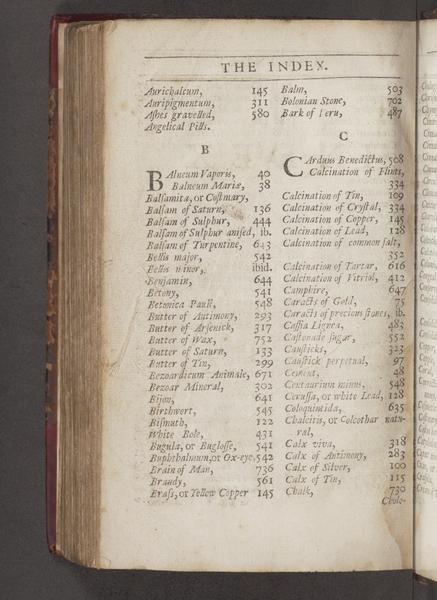 THE INDEX.
Aurichalcum, 145
Auripigmentum, 311
Ashes gravelled, 580
Angelical Pills.
B
BAlneum Vaporis, 40
Balneum Mariæ, 38
Balsamita, or Costmary,
Balsam of Saturn, 136
Balsam of Sulphur, 444
Balsam of Sulphur anised, ib.
Balsam of Turpentine, 643
Bellis major, 542
Bellis minor, ibid.
Benjamin, 644
Betony, 541
Betonica Pauli, 548
Butter of Antimony, 293
Butter of Arsenick, 317
Butter of Wax, 752
Butter of Saturn, 133
Butter of Tin, 299
Bezoardicum Animale, 671
Bezoar Mineral, 302
Bijon, 641
Birthwort, 545
Bismuth, 122
White Bole, 431
Bugula, or Buglosse, 541
Buphthalmum, or Ox-eye, 542
Brain of Man, 736
Brandy, 561
Brass, or Yellow Copper 145
Balm, 503
Bolonian Stone, 702
Bark of Peru, 487
C
CArduus Benedictus, 508
Calcination of Flints,
334
Calcination of Tin, 109
Calcination of Crystal, 334
Calcination of Copper, 145
Calcination of Lead, 128
Calcination of common salt,
352
Calcination of Tartar, 616
Calcination of Vitriol, 412
Camphire, 647
Caracts of Gold, 75
Caracts of precious stones, ib.
Cassia Lignea, 483
Castonade sugar, 552
Causticks, 323
Caustick perpetual, 97
Cement, 48
Centaurium minus, 548
Cerussa, or white Lead, 128
Coloquintida, 635
Chalcitis, or Colcothar natu-
ral,
Calx viva, 318
Calx of Antimony, 283
Calx of Silver, 100
Calx of Tin, 115
Chalk, 730